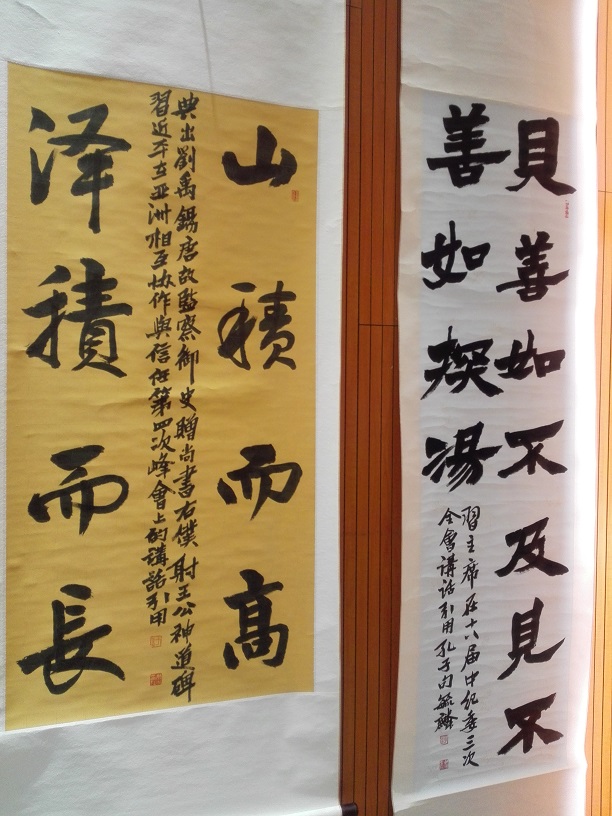 見善如不及見不
善如探湯
習主席在十八届中纪委三次
全會講话引用孔子句毓麟
山積而高
典出劉禹錫唐故監察御史贈尚書右僕射王公神道碑
習近平在亚洲相互协作與信任第四次峰會上的講話引用
泽積而長